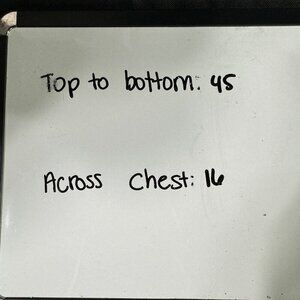 Top to bottom: 45
Across Chest: 16